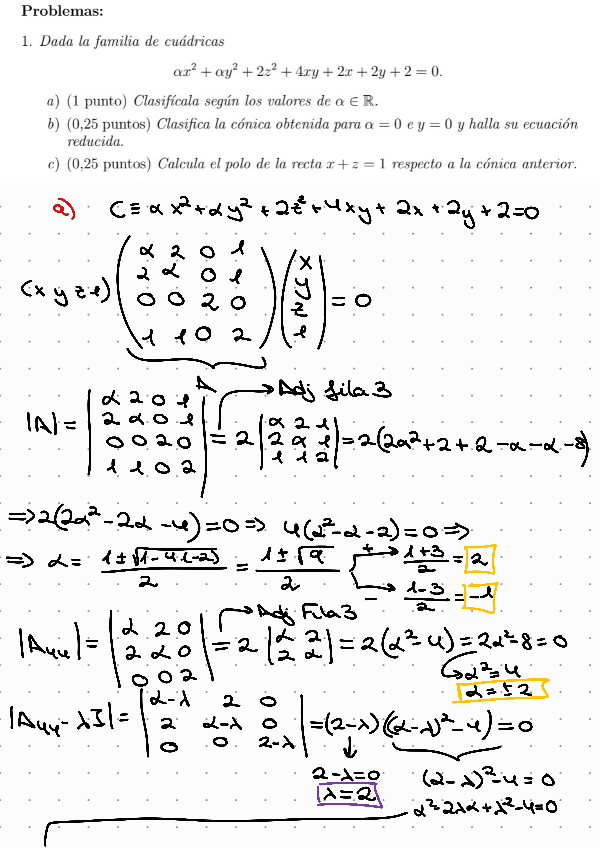 Problemas:
1. Dada la familia de cuádricas
αx² + αy² + 2z² + 4xy + 2x + 2y + 2 = 0.
a) (1 punto) Clasifícala según los valores de α ∈ ℝ.
b) (0,25 puntos) Clasifica la cónica obtenida para α = 0 e y = 0 y halla su ecuación
reducida.
c) (0,25 puntos) Calcula el polo de la recta x + z = 1 respecto a la cónica anterior.
a) C ≡ αx² + αy² + 2z² + 4xy + 2x + 2y + 2 = 0
(x y z 1) (α 2 0 1 / 2 α 0 1 / 0 0 2 0 / 1 1 0 2) (x / y / z / 1) = 0
A
Adj fila 3
|A| = |α 2 0 1 / 2 α 0 1 / 0 0 2 0 / 1 1 0 2| = 2 |α 2 1 / 2 α 1 / 1 1 2| = 2(2α² + 2 + 2 - α - α - 8)
⇒ 2(2α² - 2α - 4) = 0 ⇒ 4(α² - α - 2) = 0 ⇒
⇒ α = (1 ± √(1 - 4·(-2))) / 2 = (1 ± √9) / 2 + → (1+3)/2 = 2
- → (1-3)/2 = -1
Adj Fila 3
|A₄₄| = |α 2 0 / 2 α 0 / 0 0 2| = 2 |α 2 / 2 α| = 2(α² - 4) = 2α² - 8 = 0
α² = 4
α = ± 2
|A₄₄ - λI| = |α-λ 2 0 / 2 α-λ 0 / 0 0 2-λ| = (2-λ)((α-λ)² - 4) = 0
2 - λ = 0 (α - λ)² - 4 = 0
λ = 2 α² - 2λα + λ² - 4 = 0